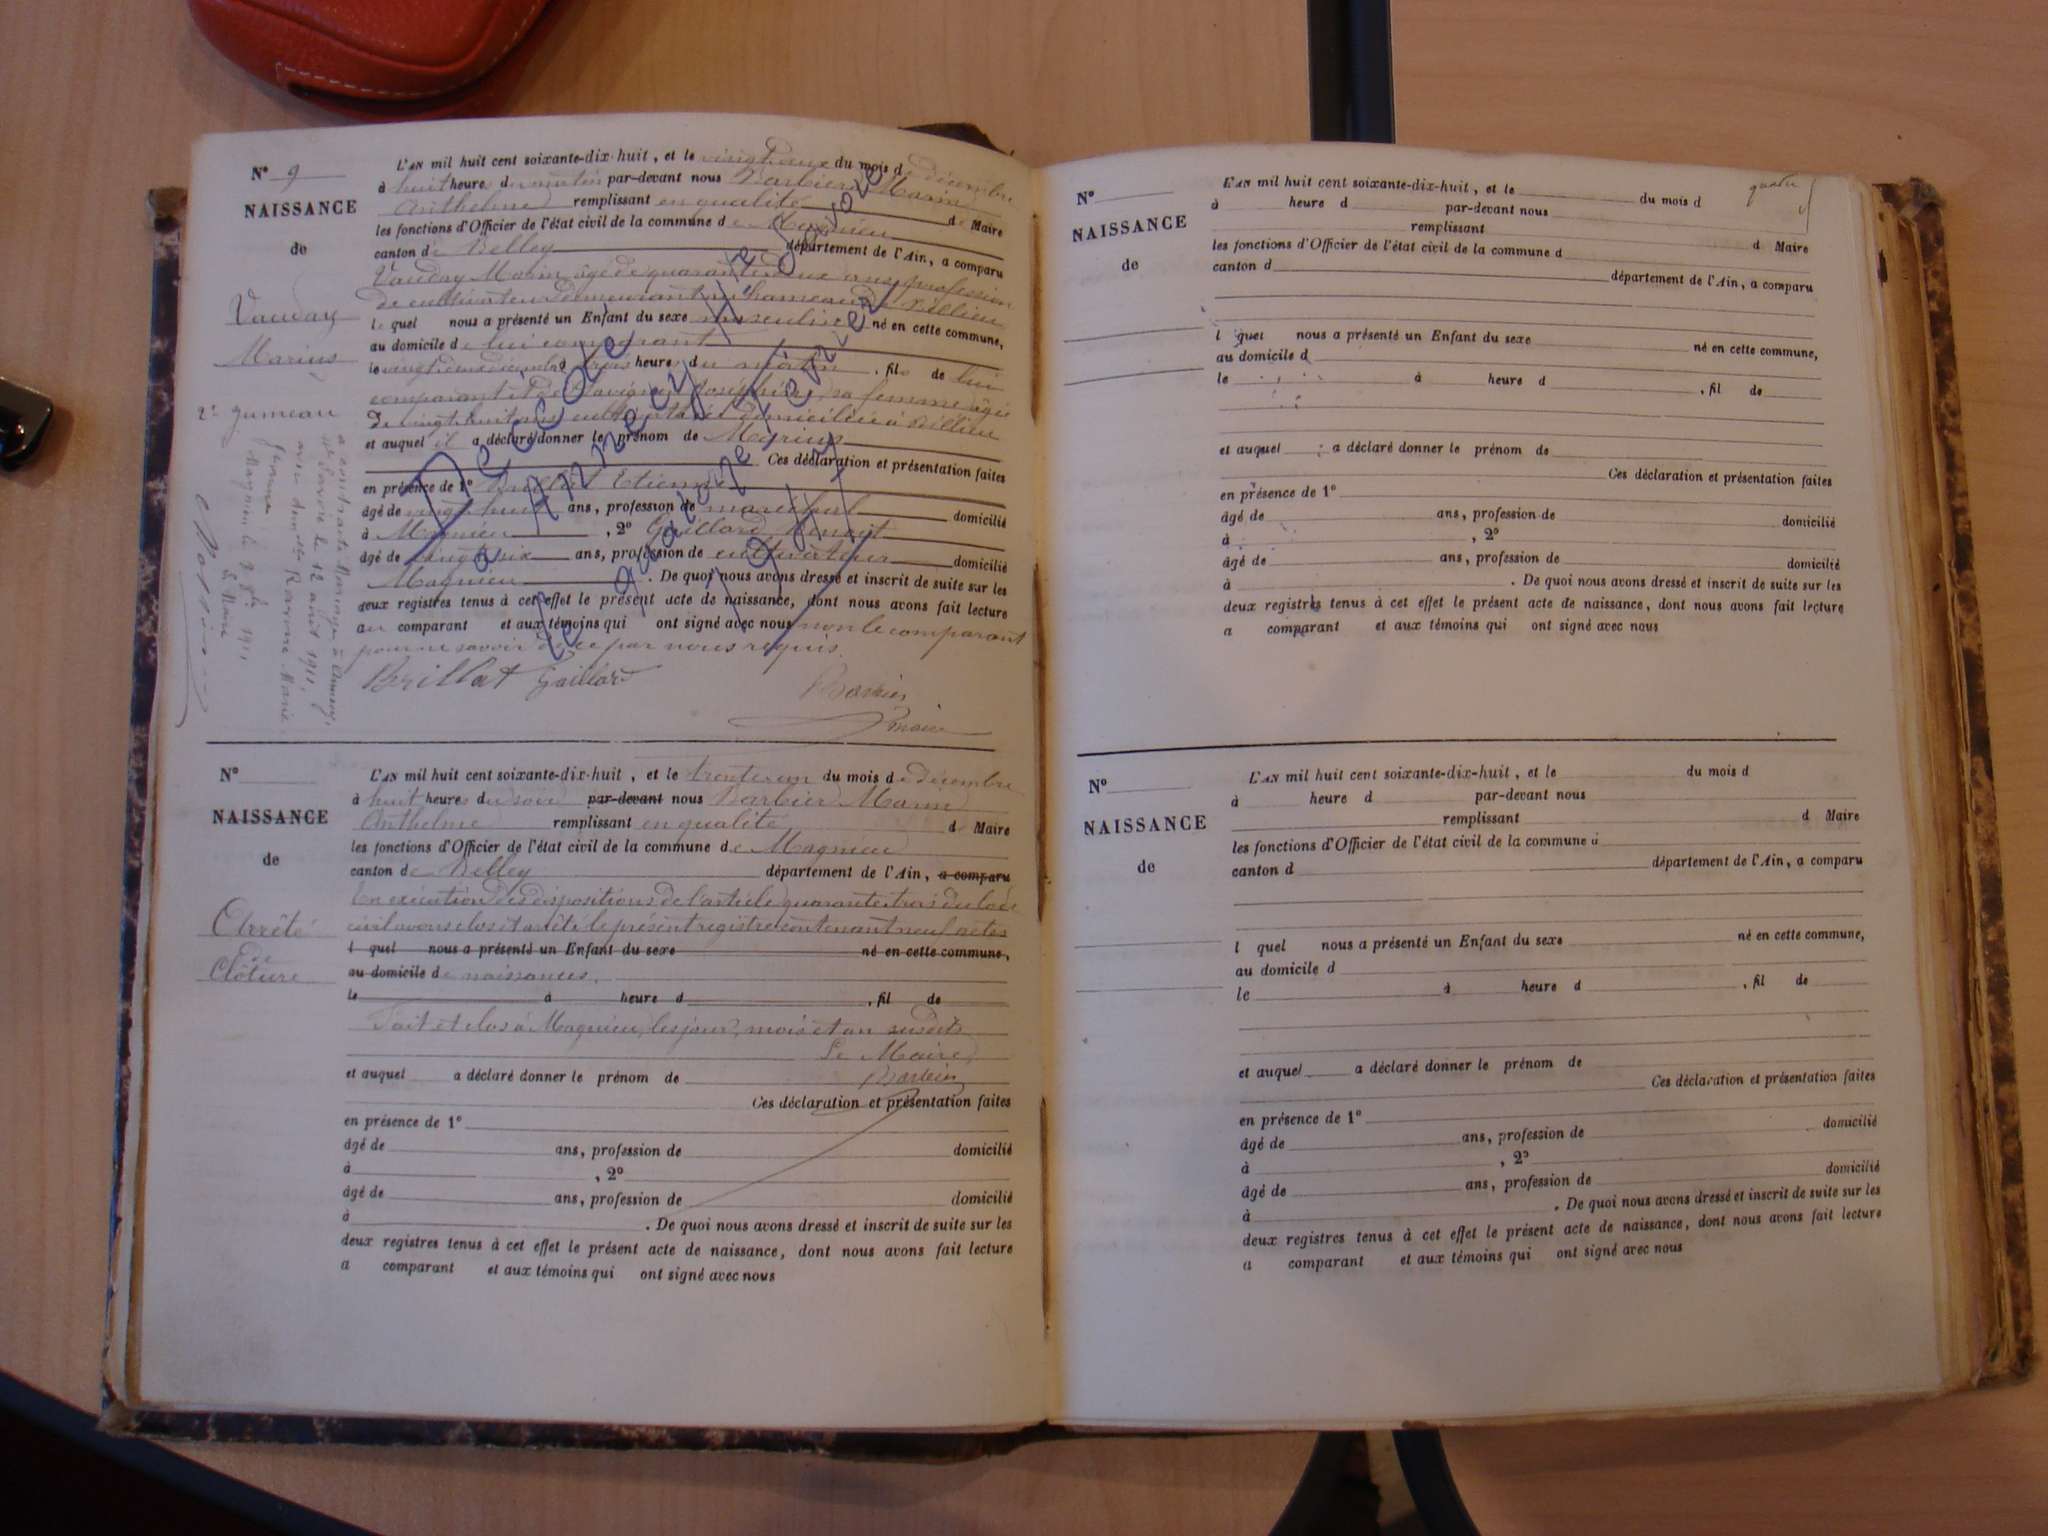 N° 9
NAISSANCE
de
Vauday
Marius
2e jumeau
a contracté mariage à Annecy,
Hte Savoie le 12 août 1911,
avec
Jeanne
Magnieu le 1911
Le Maire
L'AN mil huit cent soixante-dix-huit, et le vingt deux du mois de décembre
à huit heures du matin par-devant nous Barbier Marin
Anthelme remplissant en qualité de Maire
les fonctions d'Officier de l'état civil de la commune de Magnieu
canton de Belley département de l'Ain, a comparu
Vauday Marin âgé de quarante deux ans profession
de cultivateur demeurant au hameau de Billieu
le quel nous a présenté un Enfant du sexe masculin né en cette commune,
au domicile de lui comparant
le vingt deux décembre à trois heures du matin, fils de lui
comparant et de Savigny Joséphine, sa femme âgée
de vingt huit ans cultivatrice domiciliée à Billieu
et auquel il a déclaré donner le prénom de Marius
Ces déclaration et présentation faites
en présence de 1° Brillat Etienne
âgé de vingt huit ans, profession de maréchal domicilié
à Magnieu, 2° Gaillard Benoit
âgé de vingt six ans, profession de cultivateur domicilié
Magnieu. De quoi nous avons dressé et inscrit de suite sur les
deux registres tenus à cet effet le présent acte de naissance, dont nous avons fait lecture
au comparant et aux témoins qui ont signé avec nous non le comparant
pour ne savoir de ce par nous requis.
Brillat Gaillard Barbier
maire
Décédé
à Annecy Hte Savoie
le quatorze février
1941
N°
NAISSANCE
de
Arrêté
de
Clôture
L'AN mil huit cent soixante-dix-huit, et le trente un du mois de décembre
à huit heures du soir par-devant nous Barbier Marin
Anthelme remplissant en qualité de Maire
les fonctions d'Officier de l'état civil de la commune de Magnieu
canton de Belley département de l'Ain, a comparu
En exécution des dispositions de l'article quarante trois du Code
civil avons clos et arrêté le présent registre contenant neuf actes
l quel nous a présenté un Enfant du sexe né en cette commune,
au domicile de naissances.
le à heure d, fil de
Fait et clos à Magnieu, les jour, mois et an susdits
Le Maire
et auquel a déclaré donner le prénom de Barbier
Ces déclaration et présentation faites
en présence de 1°
âgé de ans, profession de domicilié
à, 2°
âgé de ans, profession de domicilié
à. De quoi nous avons dressé et inscrit de suite sur les
deux registres tenus à cet effet le présent acte de naissance, dont nous avons fait lecture
a comparant et aux témoins qui ont signé avec nous
N°
NAISSANCE
de
quatre
L'AN mil huit cent soixante-dix-huit, et le du mois d
à heure d par-devant nous
remplissant d Maire
les fonctions d'Officier de l'état civil de la commune d
canton d département de l'Ain, a comparu
l quel nous a présenté un Enfant du sexe né en cette commune,
au domicile d
le à heure d, fil de
et auquel a déclaré donner le prénom de
Ces déclaration et présentation faites
en présence de 1°
âgé de ans, profession de domicilié
à, 2°
âgé de ans, profession de domicilié
à. De quoi nous avons dressé et inscrit de suite sur les
deux registres tenus à cet effet le présent acte de naissance, dont nous avons fait lecture
a comparant et aux témoins qui ont signé avec nous
N°
NAISSANCE
de
L'AN mil huit cent soixante-dix-huit, et le du mois d
à heure d par-devant nous
remplissant d Maire
les fonctions d'Officier de l'état civil de la commune d
canton d département de l'Ain, a comparu
l quel nous a présenté un Enfant du sexe né en cette commune,
au domicile d
le à heure d, fil de
et auquel a déclaré donner le prénom de
Ces déclaration et présentation faites
en présence de 1°
âgé de ans, profession de domicilié
à, 2°
âgé de ans, profession de domicilié
à. De quoi nous avons dressé et inscrit de suite sur les
deux registres tenus à cet effet le présent acte de naissance, dont nous avons fait lecture
a comparant et aux témoins qui ont signé avec nous